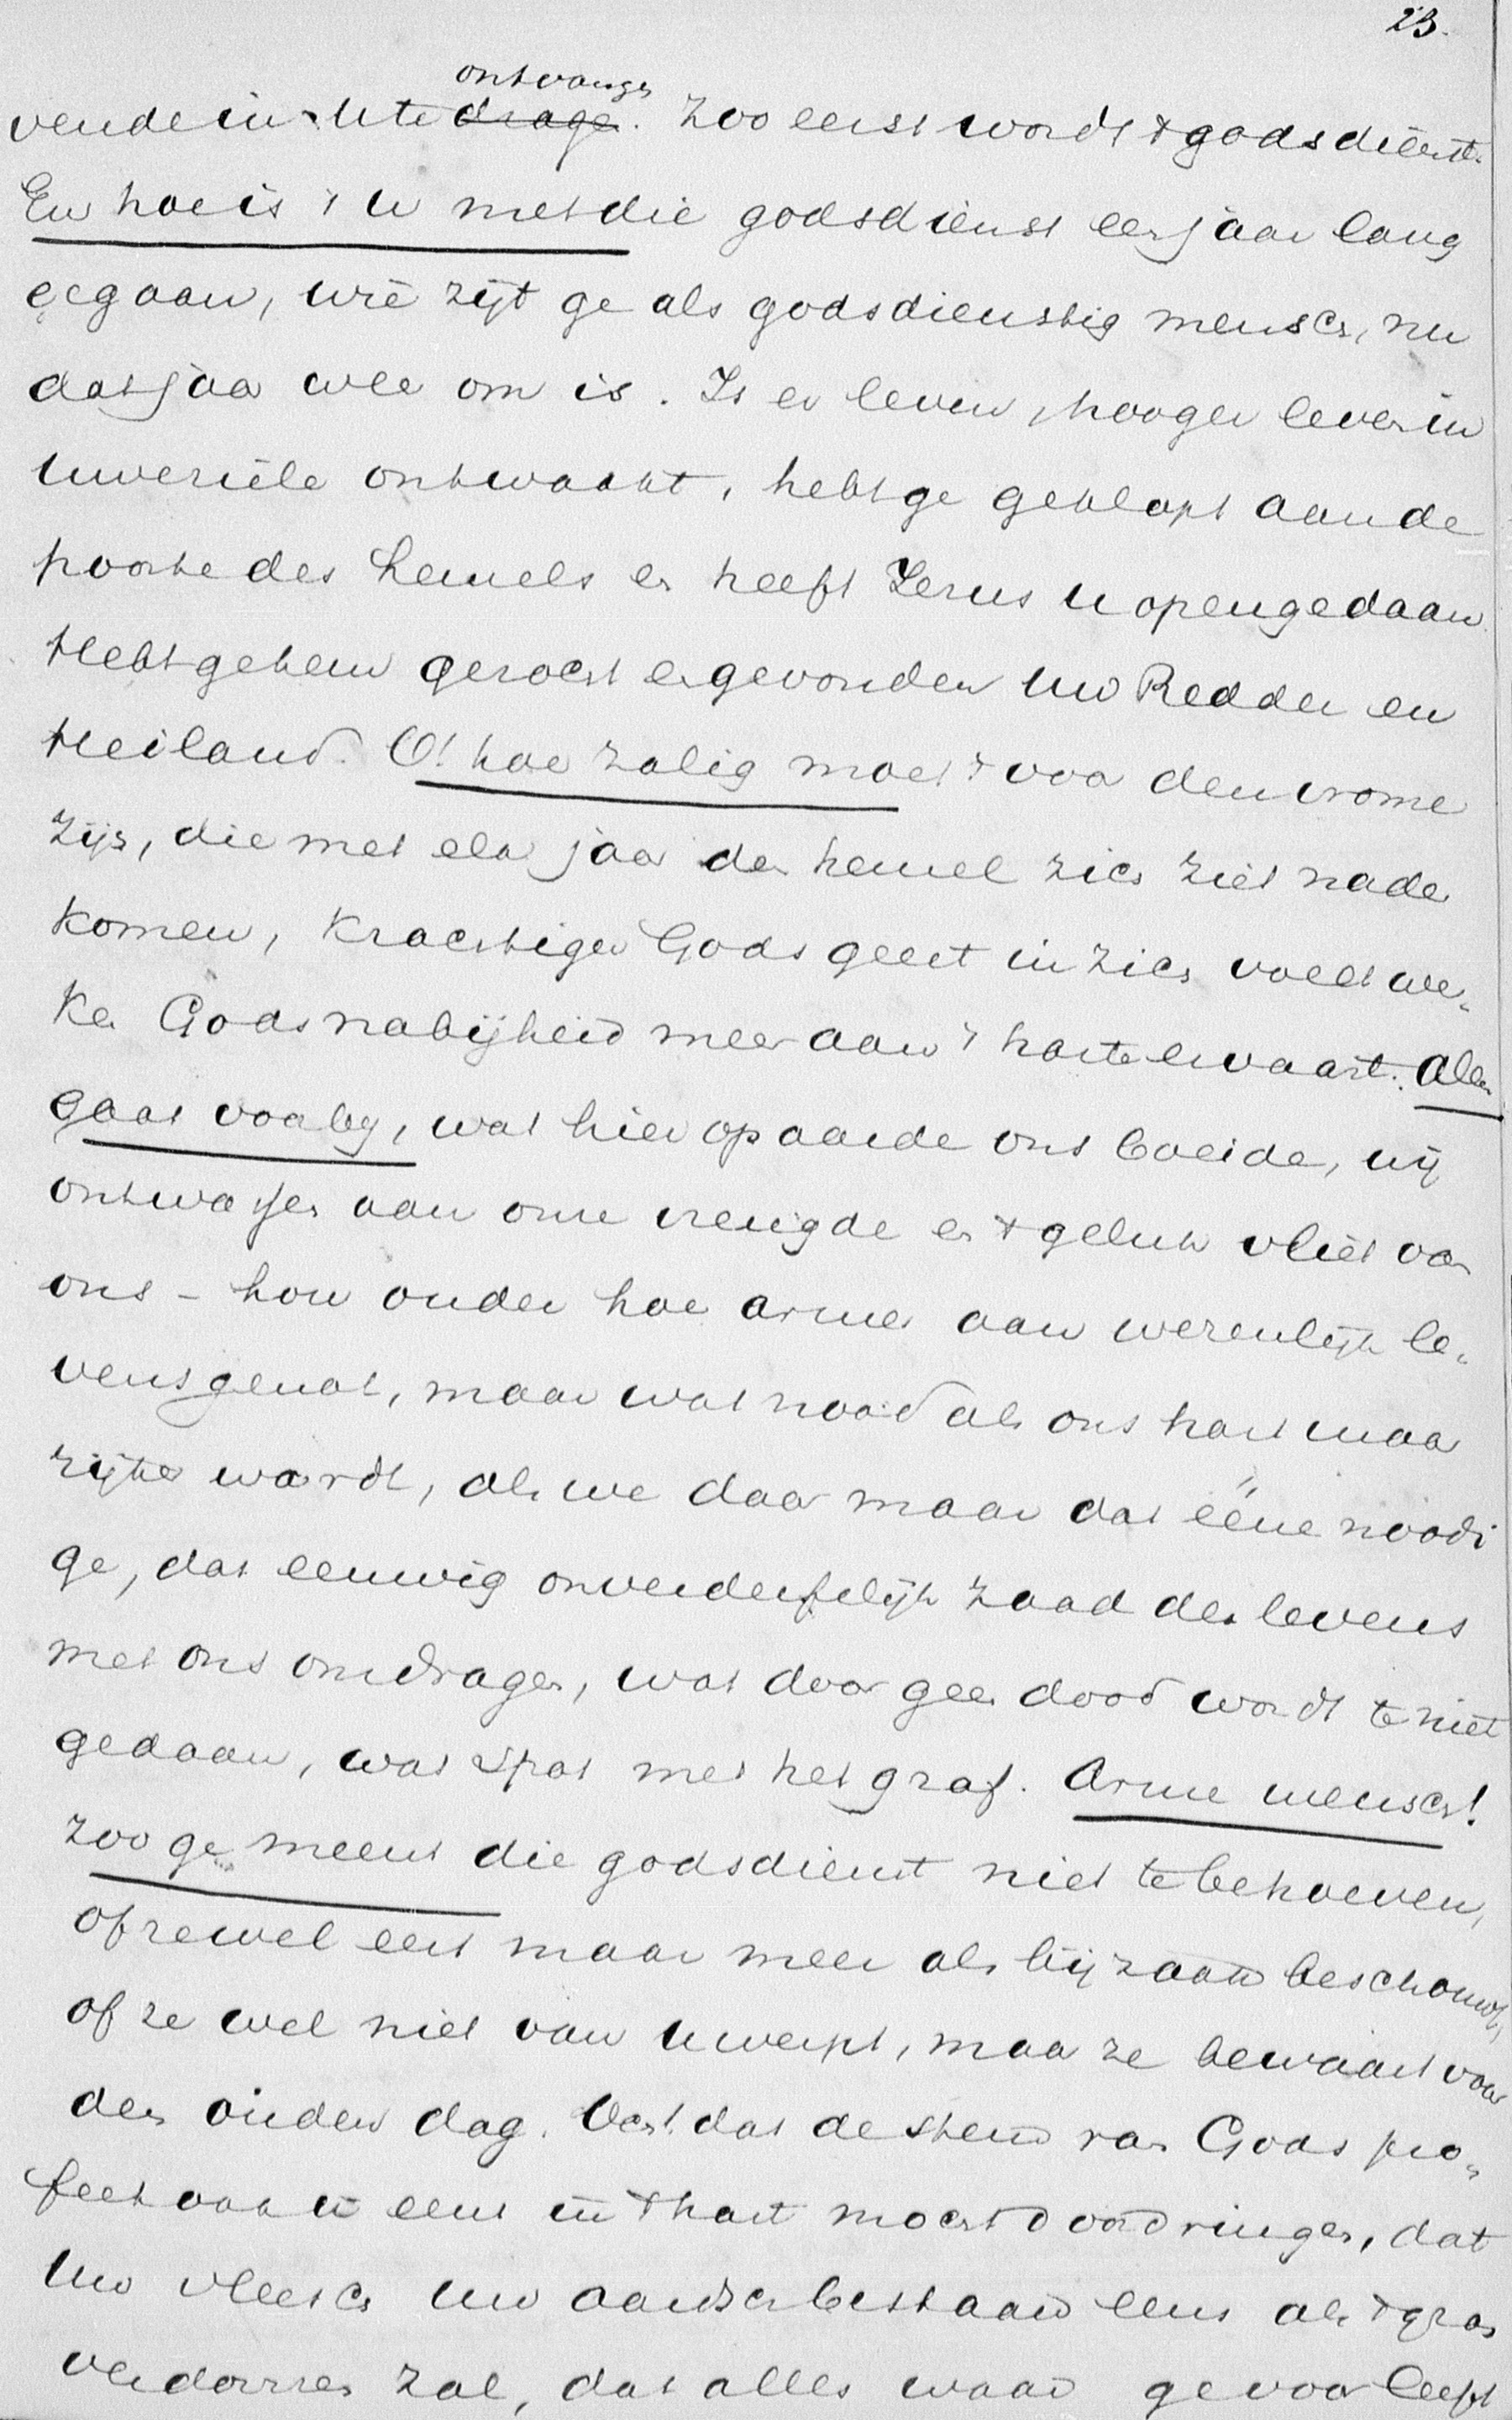 23.
ontvange
vende in 't te drage. Zoo eerst wordt 't godsdienst.
En hoe is 't U met die godsdienst een jaar lang
gegaan, wie zijt ge als godsdienstig mensch, nu
dat jaar weer om is. Is er leven, hooger leven in
uwe ziele ontwaakt, hebt ge geklopt aan de
poorte des hemels en heeft Jezus u opengedaan.
Hebt ge hem gezocht en gevonden Uw Redder en
Heiland. O! hoe zalig moet 't voor den vrome
zijn, die met elk jaar den hemel zich ziet nader
komen, krachtiger Gods geest in zich voelt wer-
ken Gods nabijheid meer aan 't harte ervaart. Alles
gaat voorbij, wat hier op aarde ons boeide, wij
ontwassen aan onze vreugde en 't geluk vliet van
ons - hou ouder hoe armer aan wezenlijk le-
vensgenot, maar wat nood als ons hart maar
rijker wordt, als we daar maar dat ééne noodi
ge, dat eeuwig onverderfelijk zaad des levens
met ons omdragen, wat door geen dood wordt te niet
gedaan, wat spot met het graf. Arme mensch!
zoo ge meent die godsdienst niet te behoeven,
of ze wel eens maar meer als bijzaak beschouwt,
of ze wel niet van u werpt, maar ze bewaart voor
den ouden dag. Och! dat de stem van Gods pro-
feet ook u eens in 't hart mocht doordringen, dat
Uw vleesch Uw aardsch bestaan eens als 't gras
verdorren zal, dat alles waar ge voor leeft